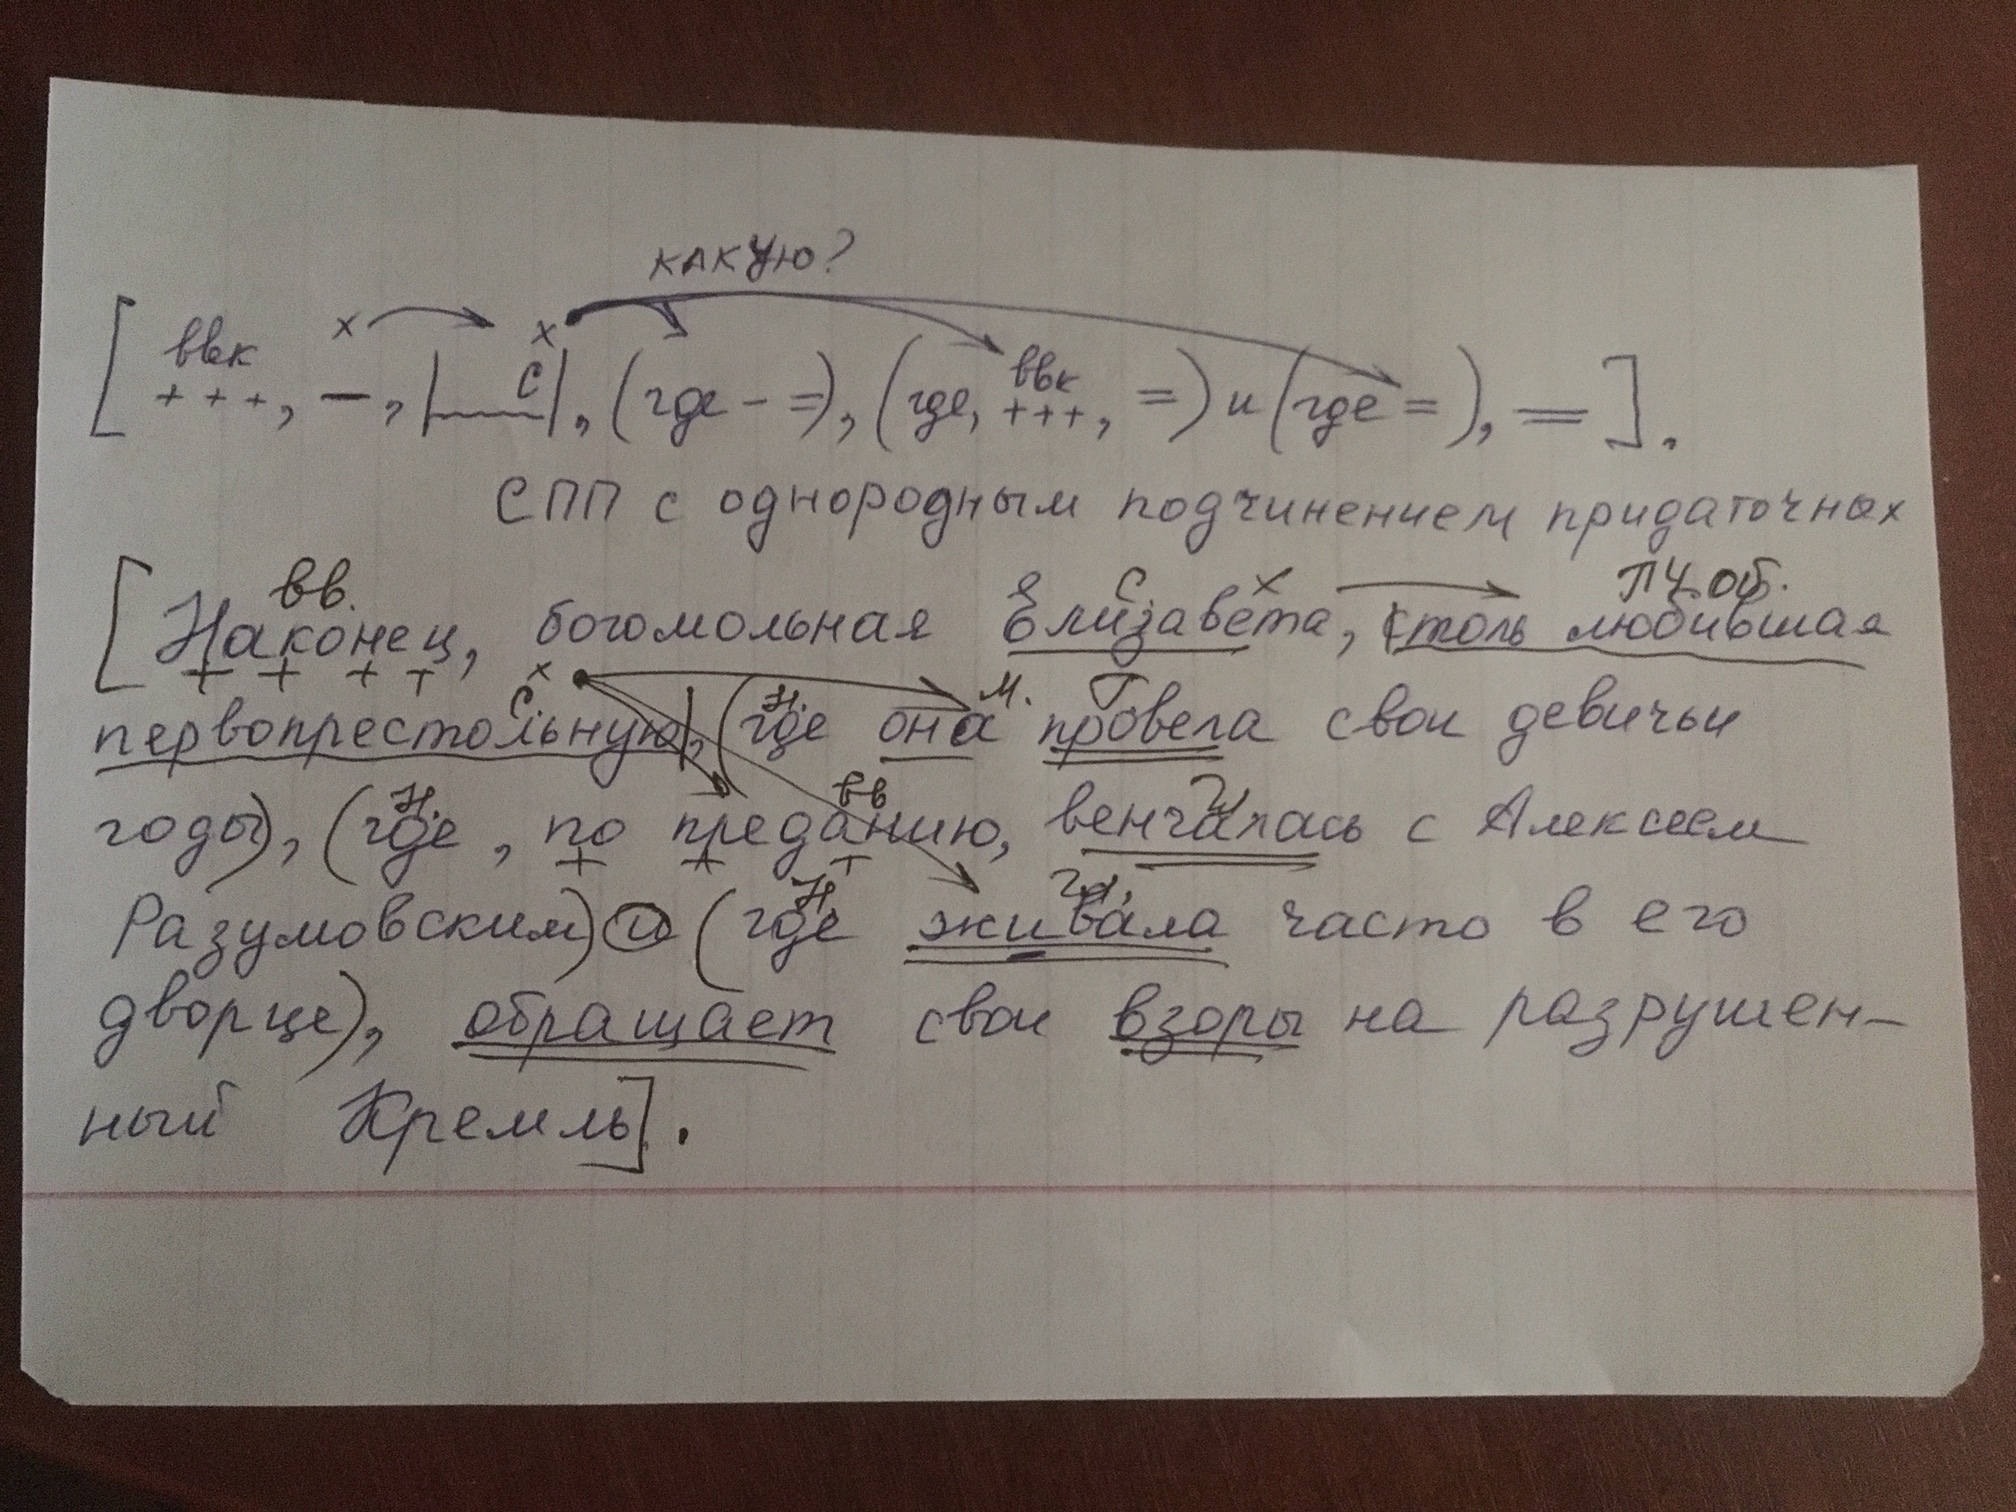 какую?
[ ввк +++, —, |～～～ С|, (где — =), (где, ввк +++, =) и (где =), = ].
СПП с однородным подчинением придаточных
вв. с. х пч. об.
[Наконец, богомольная Елизавета, столь любившая
х с. н. м. г
первопрестольную|, (где она провела свои девичьи
н. вв
годы), (где, по преданию, венчалась с Алексеем
н гл.
Разумовским) и (где живала часто в его
дворце), обращает свои взоры на разрушен-
ный Кремль].